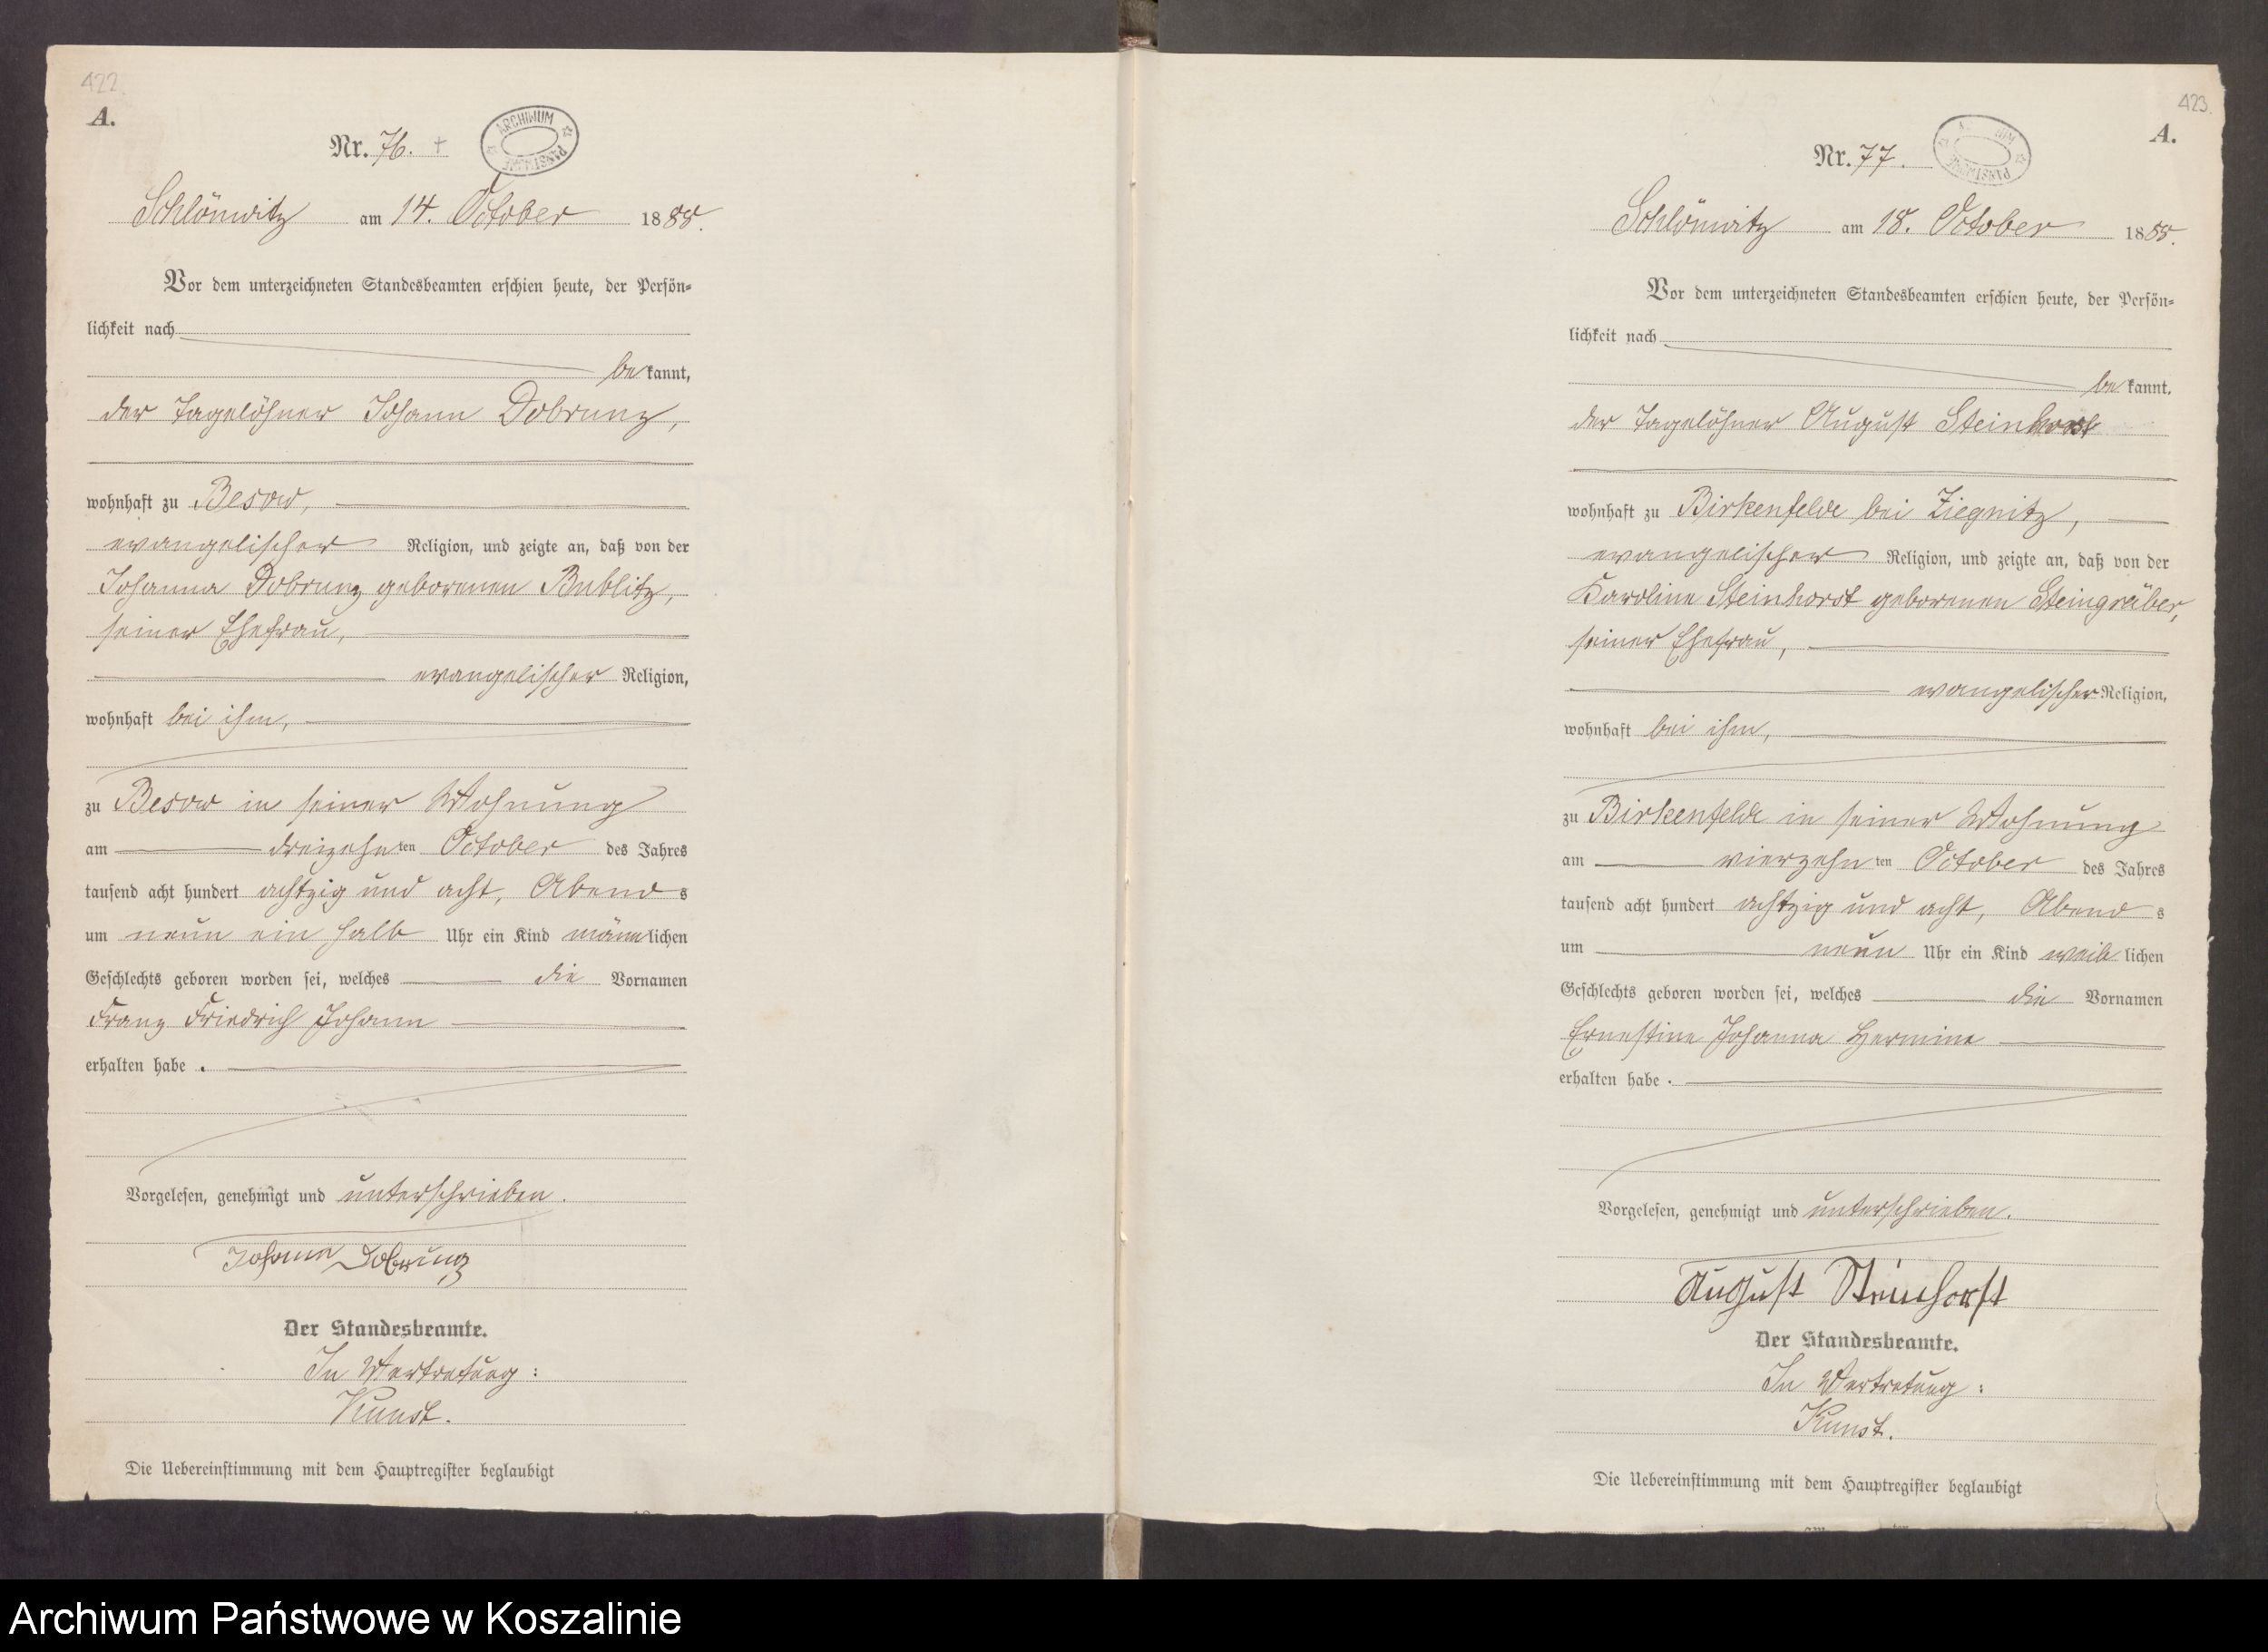 422.
A.
Nr. 76. +
ARCHIWUM PAŃSTWOWE
Schlönwitz am 14. October 1888.
Vor dem unterzeichneten Standesbeamten erschien heute, der Persön-
lichkeit nach
bekannt,
der Tagelöhner Johann Dobrunz,
wohnhaft zu Besow,
evangelischer Religion, und zeigte an, daß von der
Johanna Dobrunz geborenen Bublitz,
seiner Ehefrau,
evangelischer Religion,
wohnhaft bei ihm,
zu Besow in seiner Wohnung
am dreizehnten October des Jahres
tausend acht hundert achtzig und acht, Abends
um neun ein halb Uhr ein Kind männlichen
Geschlechts geboren worden sei, welches die Vornamen
Franz Friedrich Johann
erhalten habe .
Vorgelesen, genehmigt und unterschrieben.
Johann Dobrunz
Der Standesbeamte.
In Vertretung:
Kunst.
Die Uebereinstimmung mit dem Hauptregister beglaubigt
423.
A.
Nr. 77.
Schlönwitz am 18. October 1888.
Vor dem unterzeichneten Standesbeamten erschien heute, der Persön-
lichkeit nach
bekannt,
der Tagelöhner August Steinhorst
wohnhaft zu Birkenfelde bei Ziegnitz,
evangelischer Religion, und zeigte an, daß von der
Karoline Steinhorst geborenen Steingräber,
seiner Ehefrau,
evangelischer Religion,
wohnhaft bei ihm,
zu Birkenfelde in seiner Wohnung
am vierzehnten October des Jahres
tausend acht hundert achtzig und acht, Abends
um neun Uhr ein Kind weiblichen
Geschlechts geboren worden sei, welches die Vornamen
Ernestine Johanna Hermine
erhalten habe .
Vorgelesen, genehmigt und unterschrieben.
August Steinhorst
Der Standesbeamte.
In Vertretung:
Kunst.
Die Uebereinstimmung mit dem Hauptregister beglaubigt
Archiwum Państwowe w Koszalinie